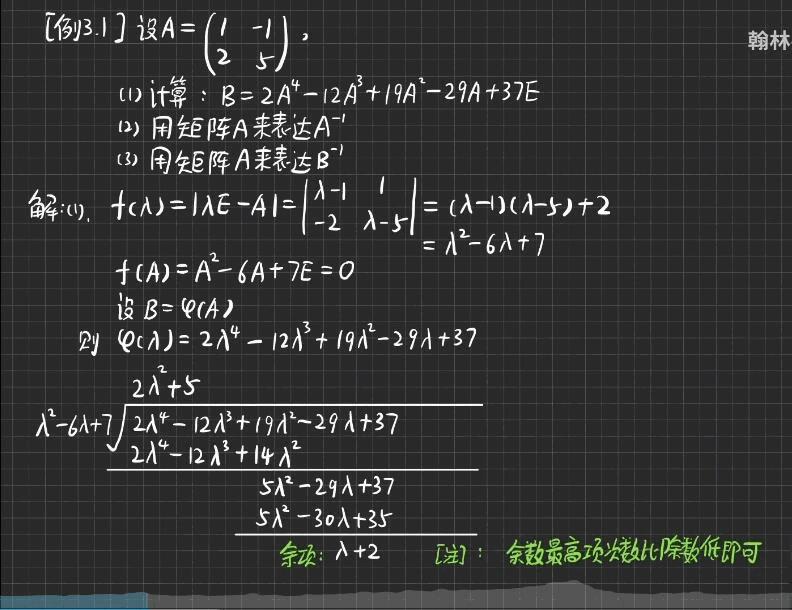 [例3.1] 设A = (1 -1
2 5),
翰林
(1) 计算: B=2A⁴-12A³+19A²-29A+37E
(2) 用矩阵A来表达A⁻¹
(3) 用矩阵A来表达B⁻¹
解:(1). f(λ)=|λE-A|=|λ-1 1
-2 λ-5| = (λ-1)(λ-5)+2
= λ²-6λ+7
f(A)=A²-6A+7E=0
设B=φ(A)
则 φ(λ)=2λ⁴-12λ³+19λ²-29λ+37
2λ²+5
λ²-6λ+7 √2λ⁴-12λ³+19λ²-29λ+37
2λ⁴-12λ³+14λ²
5λ²-29λ+37
5λ²-30λ+35
余项: λ+2 [注]: 余数最高项次数比除数低即可